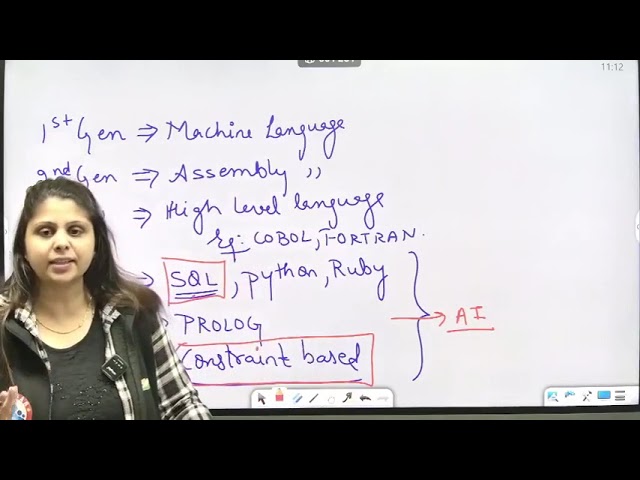 11:12
1st Gen ⇒ Machine Language
2nd Gen ⇒ Assembly ,,
⇒ High level language
Eg: COBOL, FORTRAN.
SQL, python, Ruby
PROLOG
Constraint based
→ AI